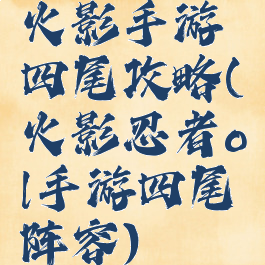 火影手游
四尾攻略(
火影忍者。
l手游四尾
阵容)